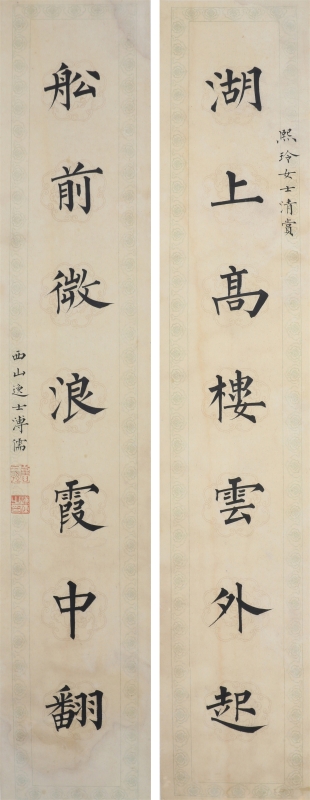 熙玲女士清賞
湖上高樓雲外起
舩前微浪霞中翻
西山逸士溥儒